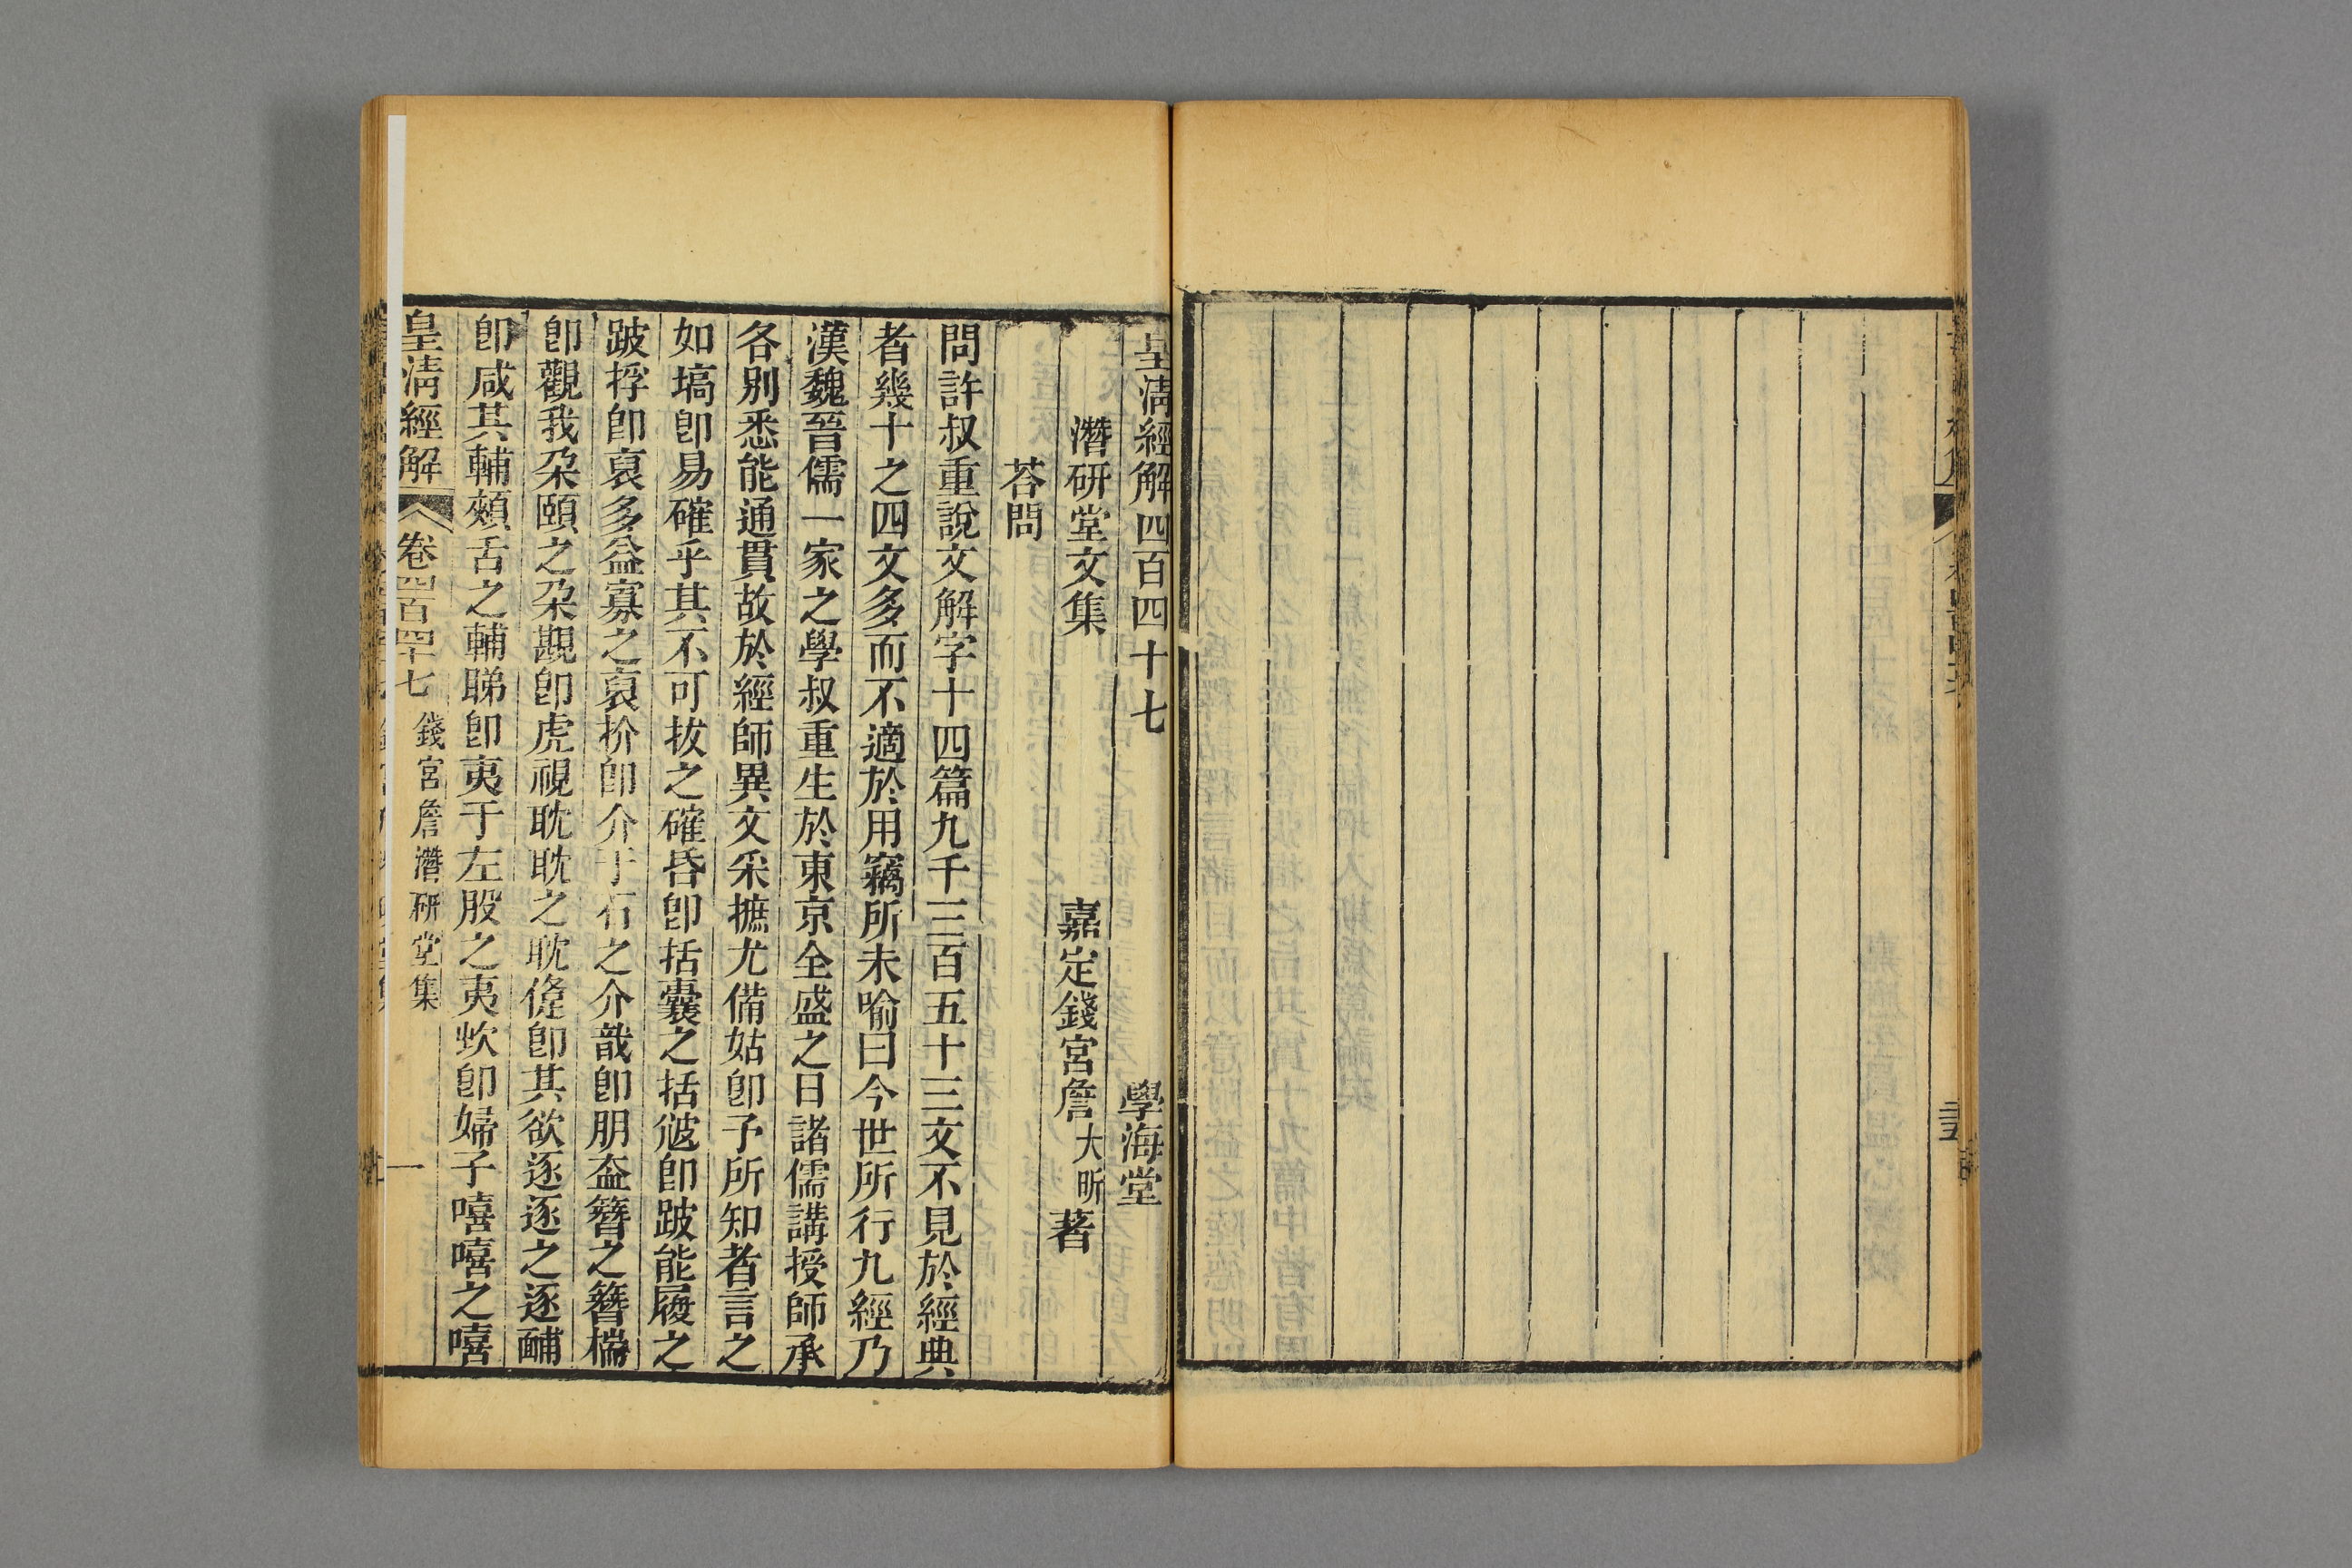 皇清經解四百四十七
學海堂
潛研堂文集
嘉定錢宮詹大昕著
荅問
問許叔重說文解字十四篇九千三百五十三文不見於經典
者幾十之四文多而不適於用竊所未喻曰今世所行九經乃
漢魏晉儒一家之學叔重生於東京全盛之日諸儒講授師承
各別悉能通貫故於經師異文采摭尤備姑卽予所知者言之
如塙卽易確乎其不可拔之確昏卽括囊之括㢮卽跛能履之
跛捊卽裒多益寡之裒扴卽介于石之介㦰卽朋盍簪之簪㯢
卽觀我朶頤之朶覭卽虎視耽耽之耽儵卽其欲逐逐之逐䩉
卽咸其輔頰舌之輔睇卽夷于左股之夷㰤卽婦子嘻嘻之嘻
皇清經解
卷四百四十七
錢宮詹潛研堂集
一